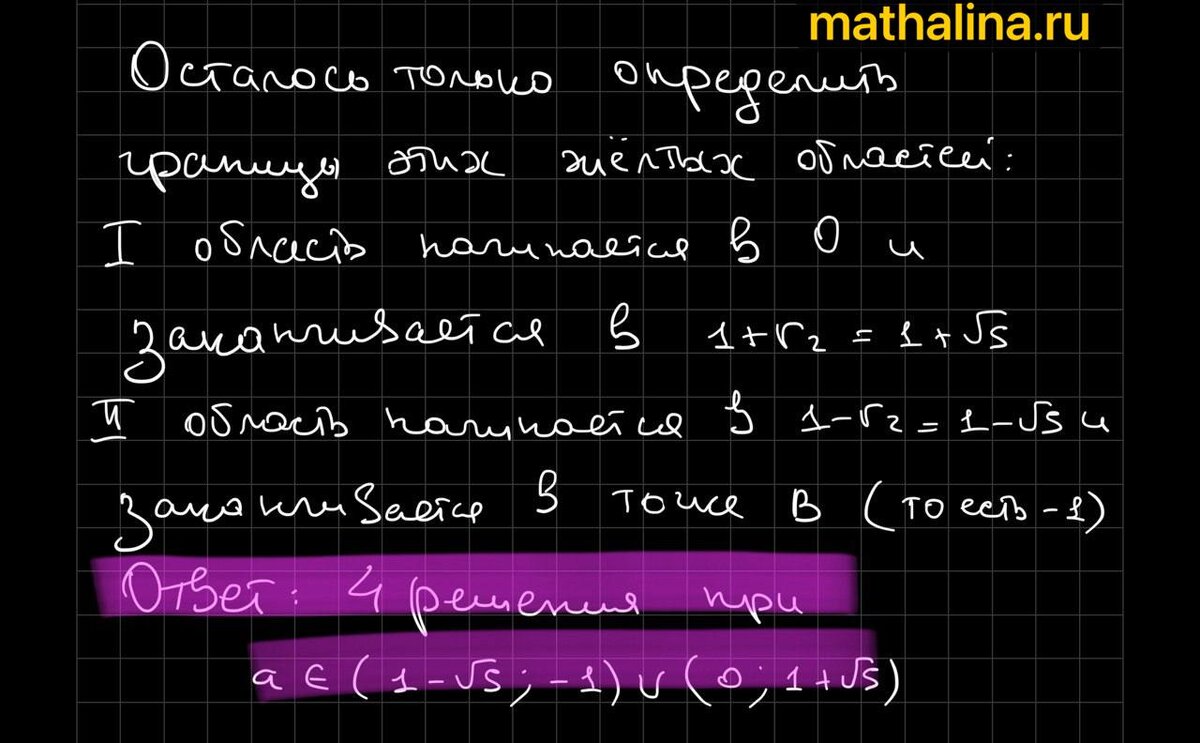 mathalina.ru
Осталось только определить
границы этих жёлтых областей:
I область начинается в 0 и
заканчивается в 1+r₂ = 1+√5
II область начинается в 1-r₂ = 1-√5 и
заканчивается в точке B (то есть -1)
Ответ: 4 решения при
a ∈ (1-√5; -1) ∪ (0; 1+√5)